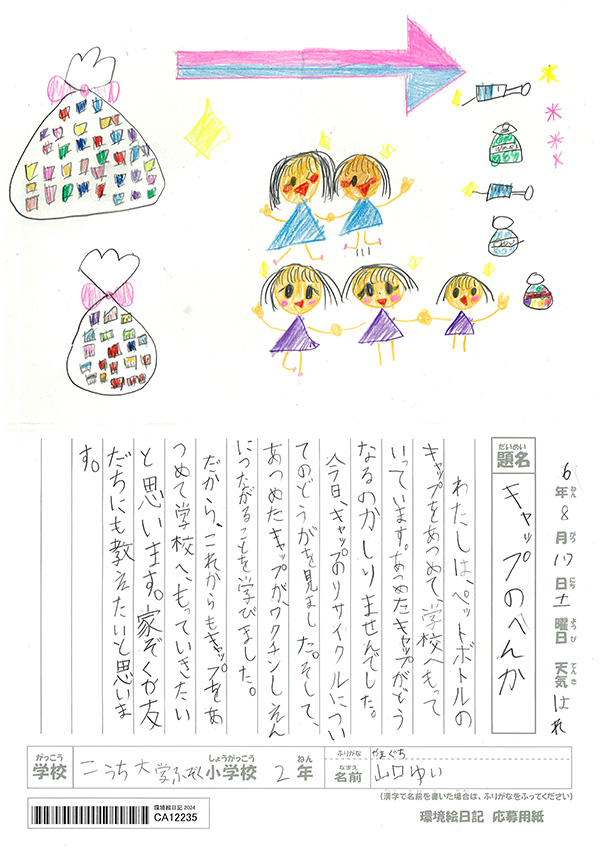 6年8月17日土曜日 天気はれ
ねん がつ にち ようび てんき
だいめい
題名
キャップのへんか
わたしは、ペットボトルの
キャップをあつめて、学校へもって
いっています。あつめたキャップがどう
なるのかしりませんでした。
今日、キャップのリサイクルについ
てのどうがを見ました。そして、
あつめたキャップが、ワクチンしえん
につながることを学びました。
だから、これからもキャップをあ
つめて学校へ、もっていきたい
と思います。家ぞくや友
だちにも教えたいと思いま
す。
がっこう しょうがっこう ねん
学校 こうち大学ふぞく小学校 2年
ふりがな やまぐち
なまえ
名前 山口ゆい
(漢字で名前を書いた場合は、ふりがなをふってください)
環境絵日記2024
CA12235
環境絵日記 応募用紙